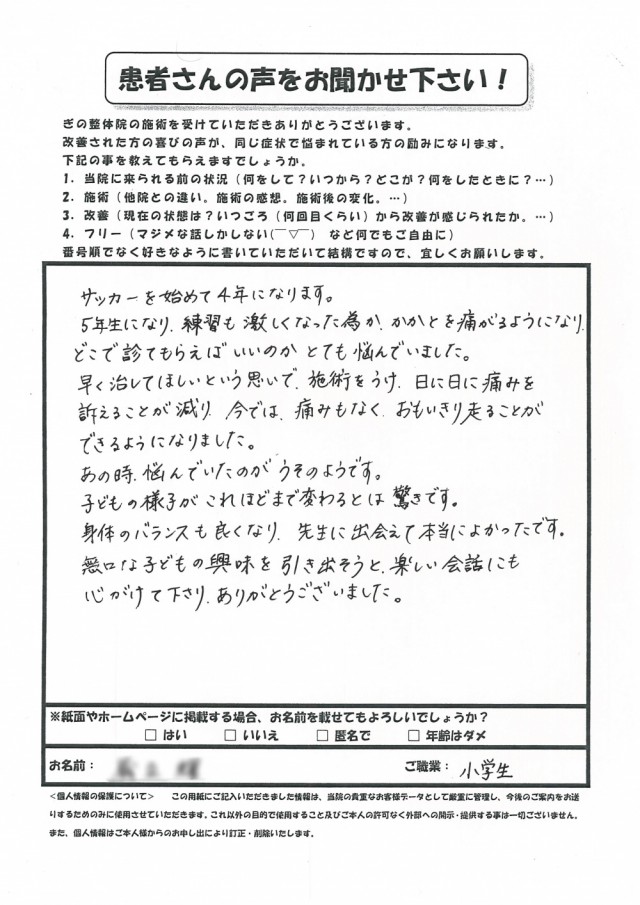 患者さんの声をお聞かせ下さい！
ぎの整体院の施術を受けていただきありがとうございます。
改善された方の喜びの声が、同じ症状で悩まれている方の励みになります。
下記の事を教えてもらえますでしょうか。
1．当院に来られる前の状況（何をして？いつから？どこが？何をしたときに？…）
2．施術（他院との違い。施術の感想。施術後の変化。…）
3．改善（現在の状態は？いつごろ（何回目くらい）から改善が感じられたか。…）
4．フリー（マジメな話しかしない(￣▽￣) など何でもご自由に）
番号順でなく好きなように書いていただいて結構ですので、宜しくお願いします。
サッカーを始めて4年になります。
5年生になり、練習も激しくなった為か、かかとを痛がるようになり、
どこで診てもらえばいいのかとても悩んでいました。
早く治してほしいという思いで、施術をうけ、日に日に痛みを
訴えることが減り、今では、痛みもなく、おもいきり走ることが
できるようになりました。
あの時、悩んでいたのがうそのようです。
子どもの様子がこれほどまで変わるとは驚きです。
身体のバランスも良くなり、先生に出会えて本当によかったです。
無口な子どもの興味を引き出そうと、楽しい会話にも
心がけて下さり、ありがとうございました。
※紙面やホームページに掲載する場合、お名前を載せてもよろしいでしょうか？
□ はい □ いいえ □ 匿名で □ 年齢はダメ
お名前： ご職業： 小学生
＜個人情報の保護について＞ この用紙にご記入いただきました情報は、当院の貴重なお客様データとして厳重に管理し、今後のご案内をお送
りするためのみに使用させていただきます。これ以外の目的で使用すること及びご本人の許可なく外部への開示・提供する事は一切ございません。
また、個人情報はご本人様からのお申し出により訂正・削除いたします。